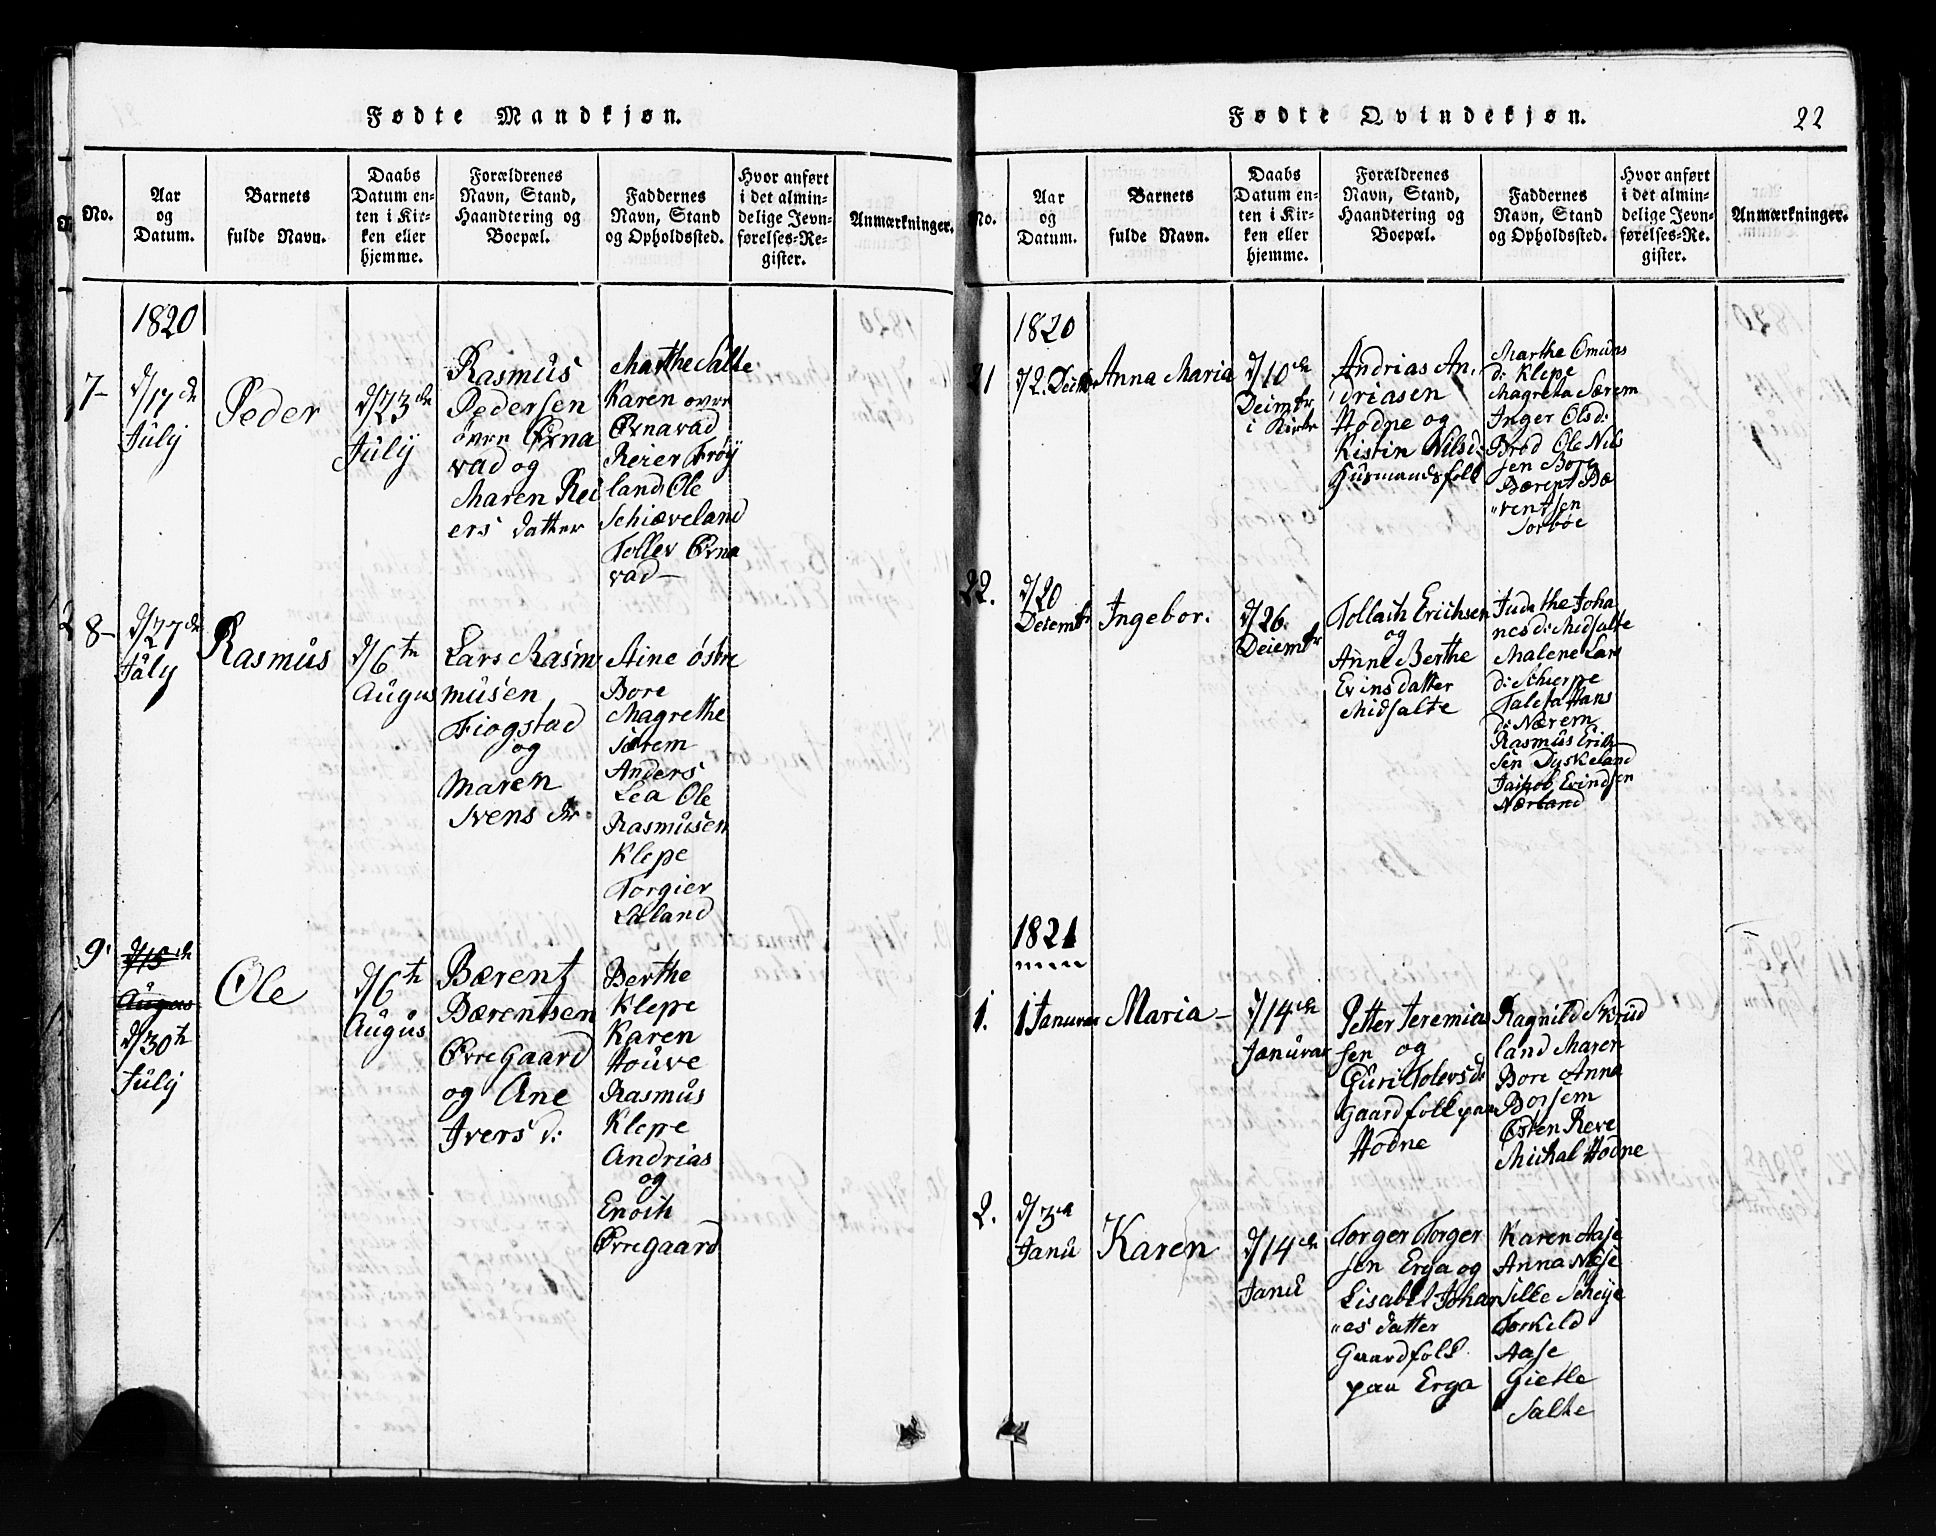 Fødte Mandkjøn.
No.
Aar
og
Datum.
Barnets
fulde Navn.
Daabs
Datum en-
ten i Kir-
ken eller
hjemme.
Forældrenes
Navn, Stand,
Haandtering og
Boepæl.
Faddernes
Navn, Stand
og Opholdssted.
Hvor anført
i det almin-
delige Jevn-
førelses-Re-
gister.
Anmærkninger.
1820
7-
d/17de
Julÿ
Peder
d/23de
Julÿ
Rasmus
Pedersen
øvre Ærna
vad og
Maren Rei
ers datter
Marthe Salte
Karen øvre
Ærnavad
Reier Frøÿ
land Ole
Schiæveland
Tollev Ærna
vad-
8-
d/27de
Julÿ
Rasmus
d/6te
Augus
Lars Rasm
musen
Fiogstad
og
Maren
Ivens dtr.
Stine østre
Bore
Magrethe
særem
Anders
Lea Ole
Rasmusen
Klepe
Torgier
Laland
9.
d/15de
Augus
d/30te
Julÿ
Ole
d/6te
Augus
Bærent
Bærentsen
Øvregaard
og Ane
Ivers d:
Berthe
Klepe
Karen
Houve
Rasmus
Klepe
Andrias
og
Enoch
Øvregaard
Fødte Qvindekjøn.
22
No.
Aar
og
Datum.
Barnets
fulde Navn.
Daabs
Datum en-
ten i Kir-
ken eller
hjemme.
Forældrenes
Navn, Stand,
Haandtering og
Boepæl.
Faddernes
Navn, Stand
og Opholdssted.
Hvor anført
i det almin-
delige Jevn-
førelses-Re-
gister.
Anmærkninger.
1820
21
d/2. Decbr
Anna Maria
d/10de
Decmbr
i Kirke
Andrias An,
driasen
Hodne og
Kistin Nilsd:
Husmandsfolk
Marthe Omuns
d: Klepe
Magreta Særem
Inger Olsd:
Brod Ole Nils
sen Bore
Bærent Bæ
"rentsen
Sorbøe
22.
d/20
Decembr
Ingebor.
d/26.
Decembr
Tollach Erichsen
og
Anne Berthe
Evinsdatter
Midsalte
Judithe Joha
nesd: Midsalte
Malene Lars
d: Schierpe
Taleta Hans
d: Nærem
Rasmus Erik
sen Dyskeland
Jackob Evindsen
Nærland
1821
1.
1 Januvar
Maria-
d/14de
Januvar
Petter Jeremia
sen og
Guri Tolevsd:
Gaardfolk paa
Hodne
Ragnild Skrud
land Maren
Bore Anna
Borsem
Østen Reve
Michal Hodne
2.
d/3de
Janu
Karen
d/14de
Janu
Torger Torger
sen Erga og
Lisabet Johan
"es datter
Gaardfolk
paa Erga
Karen Aase
Anna Næse
Sille Scheije
Torkild
Aase
Gietle
Salte